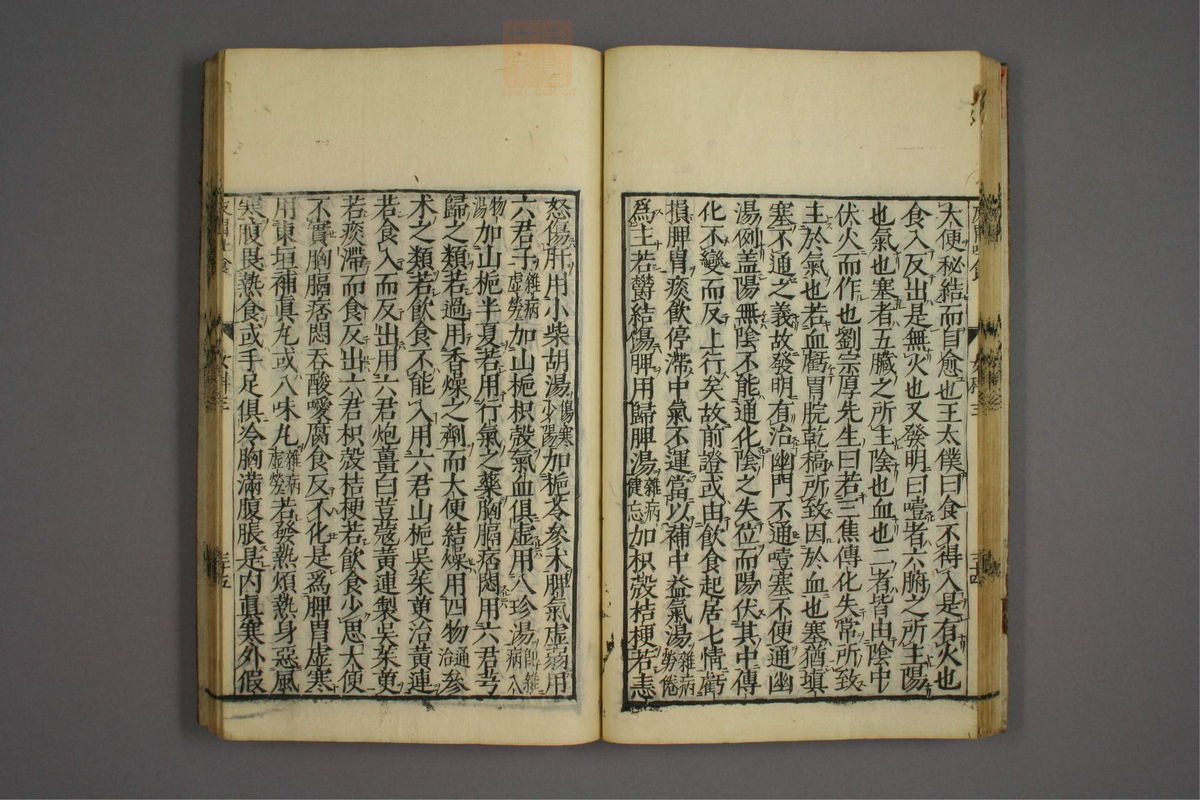 大便秘結而自愈也王太僕曰食不得入是有火也
食入反出是無火也又發明曰噎者六腑之所主陽
也氣也塞者五臟之所主陰也血也二者皆由陰中
伏火而作也劉宗厚先生曰若三焦傳化失常所致
主於氣也若血虧胃脘乾槁所致因於血也塞猶塡
塞不通之義故發明有治幽門不通噎塞不便通幽
湯例盖陽無陰不能通化陰之失位而陽伏其中傳
化不變而反上行矣故前證或由飲食起居七情虧
損脾胃痰飲停滯中氣不運當以補中益氣湯雜病勞倦
爲主若鬱結傷脾用歸脾湯雜病健忘加枳殼桔梗若恚
怒傷肝用小柴胡湯傷寒少陽加梔苓參朮脾氣虛弱用
六君子雜病虛勞加山梔枳殼氣血俱虛用八珍湯卽雜病入
物湯加山梔半夏若用行氣之藥胸膈痞悶用六君芎
歸之類若過用香燥之劑而大便結燥用四物通治參
朮之類若飲食不能入用六君山梔吳茱萸治黃連
若食入而反出用六君炮薑白荳蔲黃連製吳茱萸
若痰滯而食反出六君枳殼桔梗若飲食少思大便
不實胸膈痞悶吞酸噯腐食反不化是爲脾胃虛寒
用東垣補眞丸或八味丸雜病虛勞若發熱煩熱身惡風
寒腹畏熱食或手足俱冷胸滿腹脹是內眞寒外假
女科三
三十五